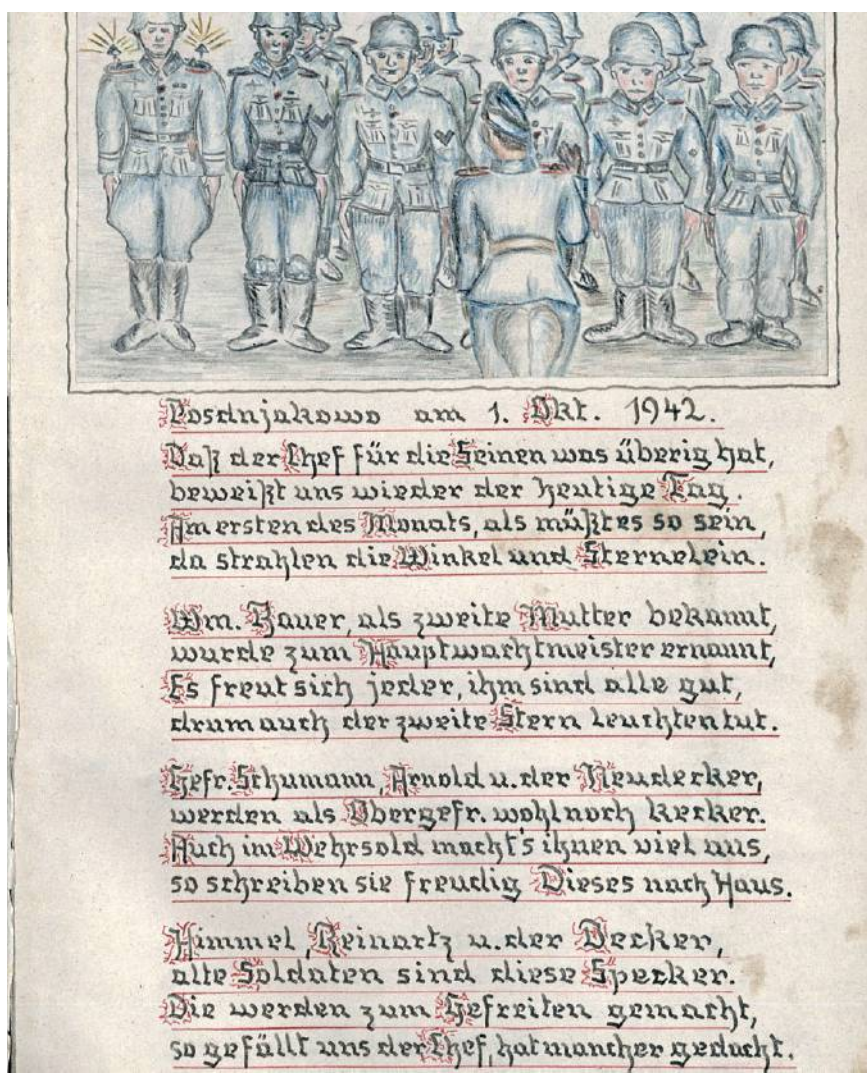 Posdnjakowo am 1. Okt. 1942.
Daß der Chef für die Seinen was überig hat,
beweißt uns wieder der heutige Tag.
Am ersten des Monats, als müßt es so sein,
da strahlen die Winkel und Sternelein.
Wm. Bauer, als zweite Mutter bekannt,
wurde zum Hauptwachtmeister ernannt,
Es freut sich jeder, ihm sind alle gut,
drum auch der zweite Stern leuchten tut.
Gefr. Schumann, Arnold u. der Neudecker,
werden als Obergefr. wohl noch kecker.
Auch im Wehrsold macht's ihnen viel aus,
so schreiben sie freudig Dieses nach Haus.
Himmel, Reinartz u. der Becker,
alte Soldaten sind diese Specker.
Die werden zum Gefreiten gemacht,
so gefällt uns der Chef, hat mancher gedacht.